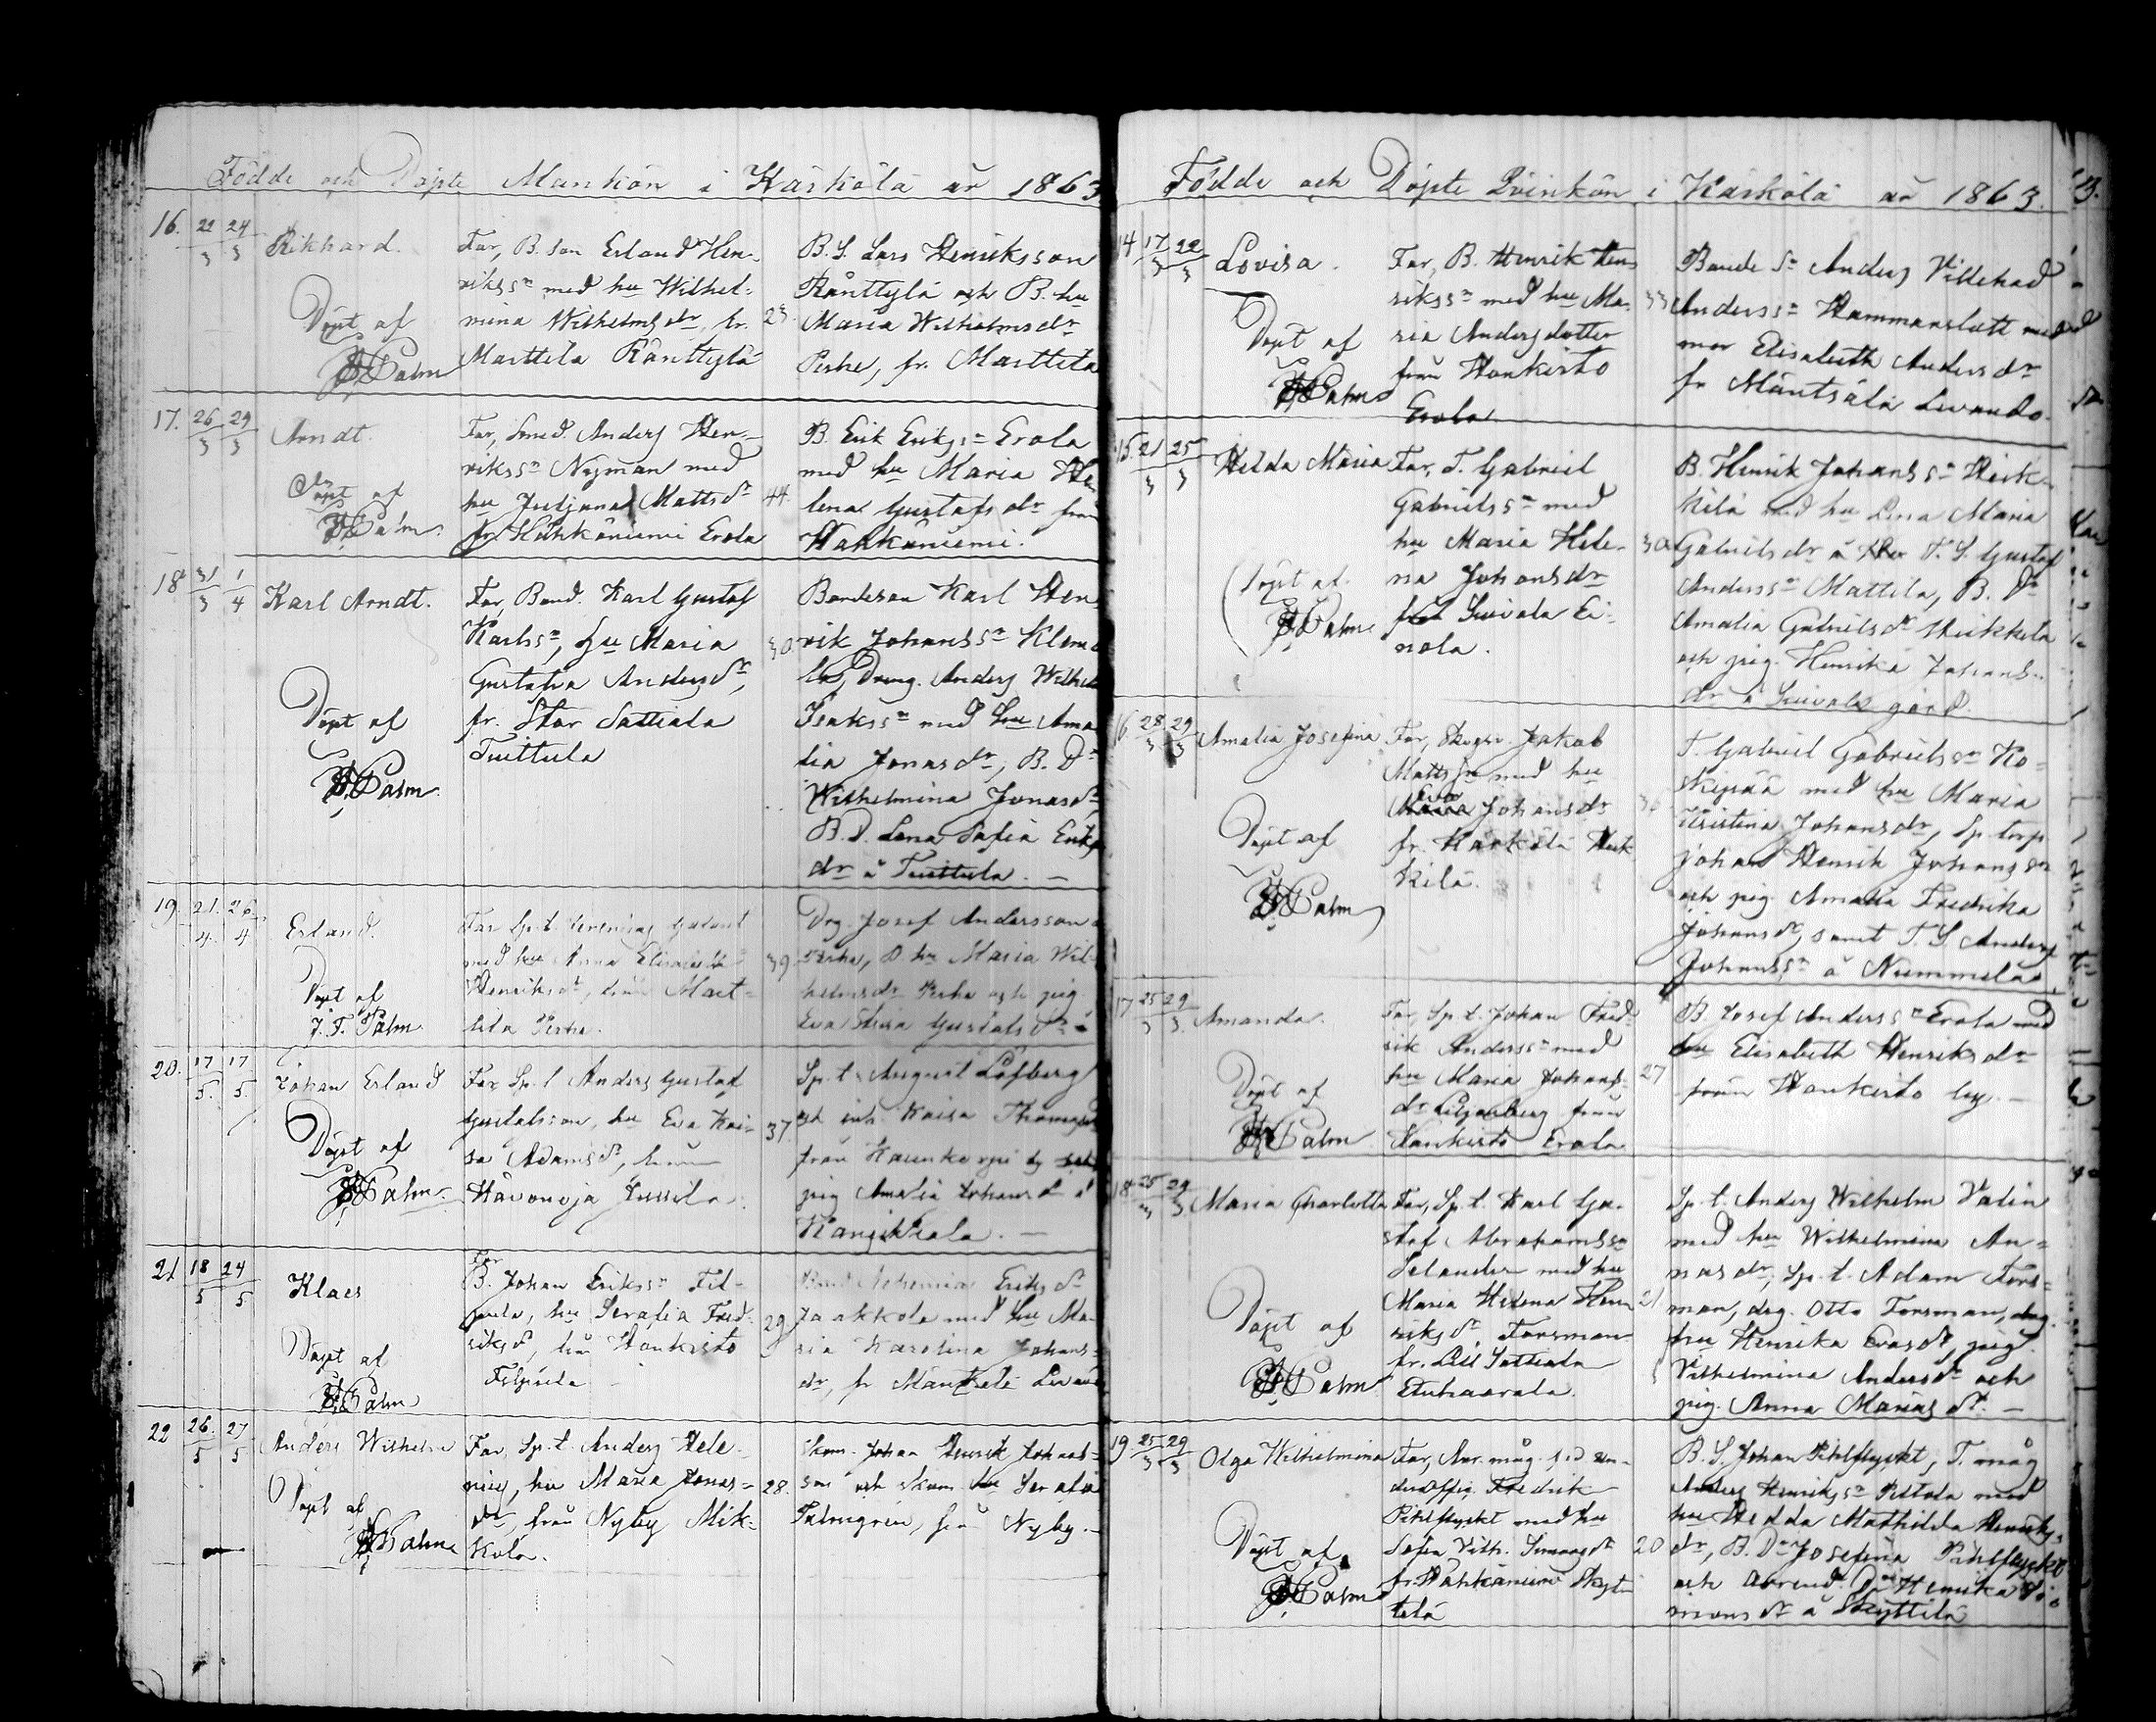 Födde och Döpte Mankön i Kärkölä år 1863
16. 22/3 24/3 Rikhard.
Döpt af
Palm
Far, B. son Erland Hen-
rikss:n med hu Wilhel-
mina Wilhelmsdr, fr. 23.
Marttila Ränttylä
B. S. Lars Henriksson
Ränttylä och B. hu
Maria Wilhelmsdr
Perhe, fr. Marttila
17. 26/3 29/3 Arndt.
Döpt af
Palm.
Far, Smed. Anders Hen-
rikss:n Nyman med
hu Justjana Mattsdr 44.
fr Hähkäniemi Erola
B. Erik Eriks:n Erola
med hu Maria He
lena Gustafsdr från
Hähkäniemi.
18 31/3 1/4 Karl Arndt.
Döpt af
Palm.
Far, Bond. Karl Gustaf
Karlss:n, hu Maria 30.
Gustafva Andersdr,
fr. Stor Sattiala
Tuittula
Bondeson Karl Hen
rik Johanss:n Klem
Dreng. Anders Wilhel
Isakss:n med hu Ama
lia Jonasdr, B. Dr
Wilhelmina Jonasdr
B. D. Lena Sofia Eriks
dr å Tuittula. —
19. 21./4. 26./4 Erland.
Döpt af
J. F. Palm
Far Sp. t.
med hu Anna Elisabeth 39.
Henriksdr, från Mart-
tila Perhe.
Drg. Josef Andersson
Perhe, B hu Maria Wil-
helmsdr Perhe och pig.
Eva Stina Gustafsdr
20. 17/5. 17/5. Johan Erland
Döpt af
Palm.
Far, Sp. t Anders Gustaf
Gustafsson, hu Eva Kai- 37.
sa Adamsdr, från
Hävonoja Jussila.
Sp. t. August Löfberg
och inh. Kaisa Thomas
från by
pig Amalia Johansdr å
21 18/5 24/5 Klaes
Döpt af
Palm
Far
B. Johan Erikss:n Fil-
pula, hu Serafia Fred- 29
riksdr, från Hankisto
Filpula
Bond Nehemia Eriksdr
Jaakkola med hu Ma-
ria Karolina Johans-
dr, fr Mäntsälä
22 26./5 27/5 Anders Wilhelm
Döpt af
Palm
Far, Sp. t. Anders Hele-
nius, hu Maria Jonas- 28.
dr, från Nyby Mik-
kola.
Skom. Johan Henrik Johans-
son och Skom. hu Serafia
Palmgren, från Nyby. —
Födde och Döpte Qvinkön i Kärkölä år 1863.
14 17/3 22/3 Lovisa.
Döpt af
Palm
Far, B. Henrik Hen
rikss:n med hu Ma- 33
ria Andersdotter
från Hankisto
Erola
Bonde Sn Anders Villehad
Anderss:n Hammarslätt med
mor Elisabeth Andersdr
fr Mäntsälä Levando.
15. 21/3 25/3 Hilda Maria
Döpt af.
Palm
Far, T. Gabriel
Gabrielss:n med
hu Maria Hele- 30.
na Johansdr
Suivala Ei-
nola.
B. Henrik Johanss:n Heik-
kilä med hu Lena Maria
Gabrielsdr å T. S. Gustaf
Anderss:n Mattila, B. Dr
Amalia Gabrielsdr Heikkilä
och pig. Henrika Johans-
dr å Suivala gård.
16. 28/3 29/3 Amalia Josefina
Döpt af
Palm
Far, Jakob
Matts:n med hu
Eva Johansdr
fr. Kärkölä Heik
kilä.
T. Gabriel Gabrielss:n Ko-
skipää med hu Maria
Kristina Johansdr, Sp. torp.
Johan Henrik Johanss:n
och pig. Amalia Fredrika
Johansdr, samt T. S. Anders
Johanss:n å Nummela.
17 25/3 29/3. Amanda.
Döpt af
Palm
Far, Sp. t. Johan Fred-
rik Anderss:n med
hu Maria Johans- 27
dr Liljenberg från
Hankisto Erola
B. Josef Anderss:n Erola med
hu Elisabeth Henriksdr
från Hankisto by. —
18 25/3 29/3. Maria Charlotta
Döpt af
Palm.
Far, Sp. t. Karl Gu-
staf Abrahamss:n
Selander med hu
Maria Helena Hen 21
riksdr Forsman
fr. Lill Sattiala
Etuhaarala.
Sp. t. Anders Wilhelm Valin
med hu Wilhelmina An-
nasdr, Sp. t. Adam Fors-
man, drg. Otto Forsman, drg.
hu Henrika Evasdr, pig.
Vilhelmina Andersdr och
pig. Anna Mariasdr. —
19 25/3 29/3 Olga Wilhelmina
Döpt af
Palm
Far, Arr. måg. f.d. un-
deroffic. Fredrik
Pihlflyckt med hu
Sofia Vilh. Simonsdr 20
fr. Hähkäniemi Skyt-
tilä
B. S. Johan Pihlflyckt, T. måg
Anders Henrikss:n Peltola med
hu Hedda Mathilda Henriks-
dr, B. Dr Josefina Pihlflyckt
och Arrend. Dr Henrika Si-
monsdr å Skyttilä